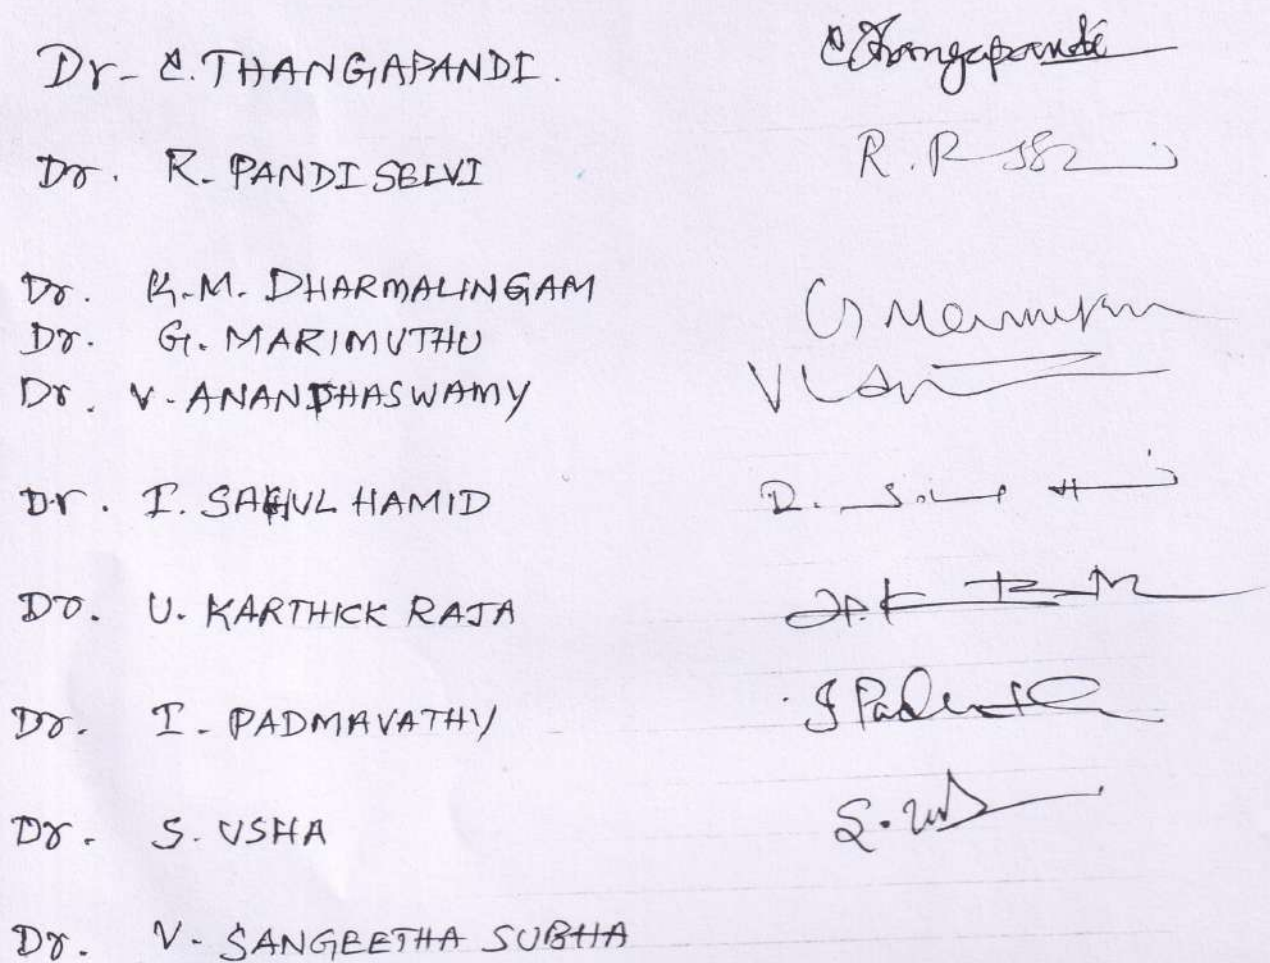 Dr. C. THANGAPANDI. C Thangapandi
Dr. R. PANDISELVI R. P
Dr. K.M. DHARMALINGAM
Dr. G. MARIMUTHU G Marimuthu
Dr. V. ANANDHASWAMY
Dr. I. SAHUL HAMID
Dr. U. KARTHICK RAJA
Dr. I. PADMAVATHY I Padmavathy
Dr. S. USHA S. Usha
Dr. V. SANGEETHA SUBHA